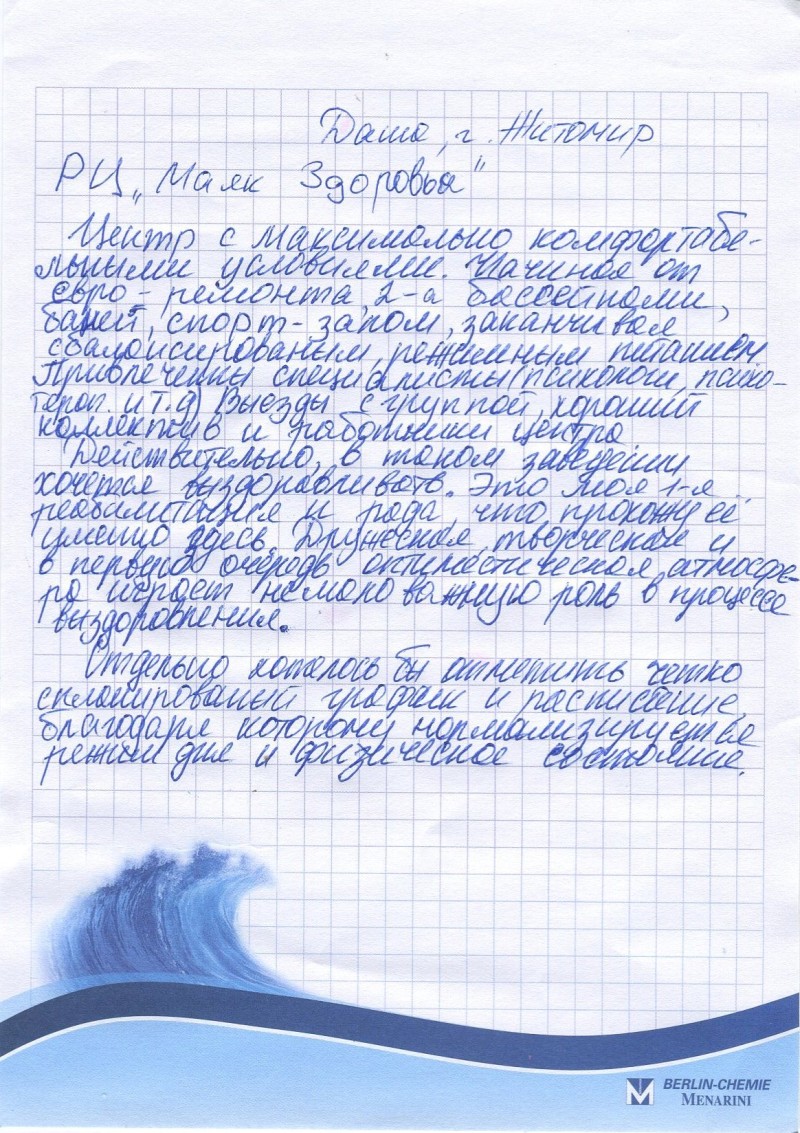 Даша, г. Житомир
РЦ „Маяк Здоровья"
Центр с максимально комфортабе-
льными условиями. Начиная от
евро-ремонта, 2-а бассейнами,
баней, спорт-залом, заканчивая
сбалансированым, режимным питанием
Привлеченны специалисты (психологи, психо-
терап. и т.д) Выезды с группой, хороший
коллектив и работники центра
Действительно, в таком заведении
хочется выздоравливать. Это моя 1-я
реабилитация и рада, что прохожу её
именно здесь. Дружеская, творческая и
в первую очередь оптимистическая атмосфе-
ра играет немало важную роль в процессе
выздоровления.
Отдельно хотелось бы отметить четко
спланированый график и расписение,
благодаря которому нормализируется
режим дня и физическое состояние.
BERLIN-CHEMIE
MENARINI